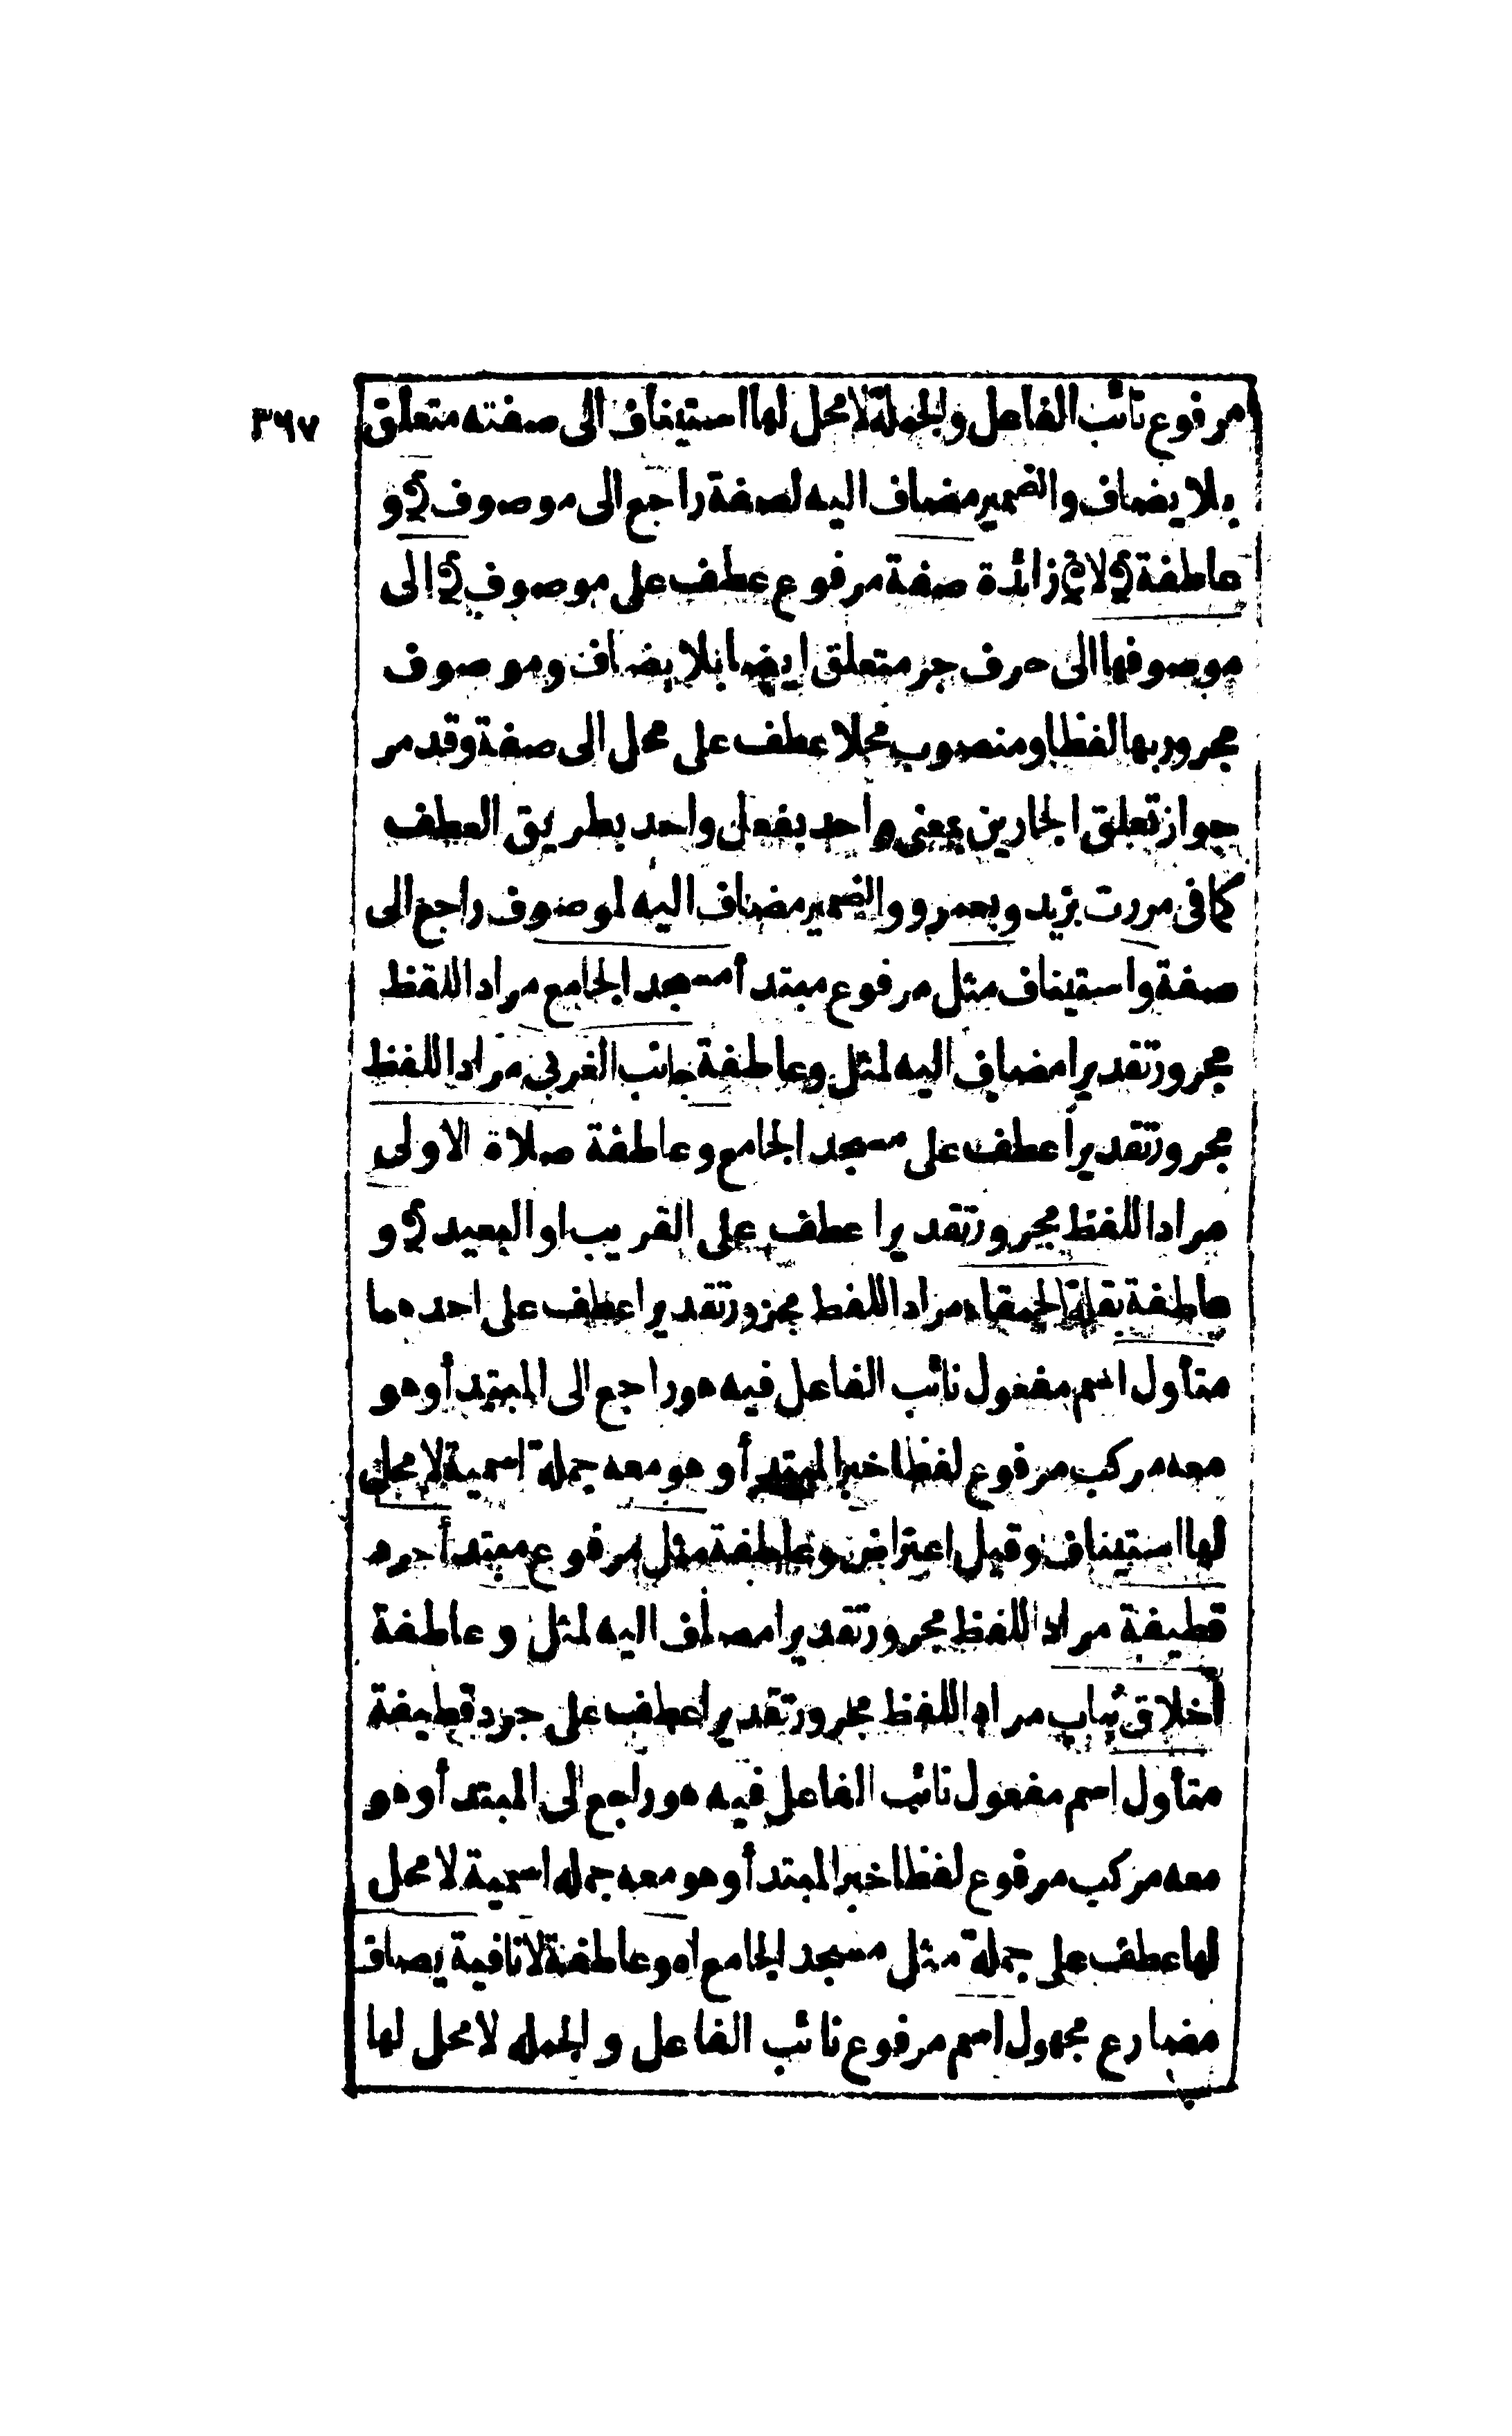 ٣٦٧
مرفوع نائب الفاعل والجملة لا محل لها استيناف الى صفته متعلق
بلا يضاف والضمير مضاف اليه لصفة راجع الى موصوف و
عاطفة لا زائدة صفة مرفوع عطف على موصوف الى
موصوفها الى حرف جر متعلق ايضا بلا يضاف وموصوف
مجرور بها لفظا ومنصوب محلا عطف على محل الى صفة وقد مر
جواز تعلق الجارين بمعنى واحد بفعل واحد بطريق العطف
كما فى مررت بزيد وبعمرو والضمير مضاف اليه لموصوف راجع الى
صفة واستيناف مثل مرفوع مبتدأ مسجد الجامع مراد اللفظ
مجرور تقديرا مضاف اليه لمثل وعاطفة جانب الغربى مراد اللفظ
مجرور تقديرا عطف على مسجد الجامع وعاطفة صلاة الاولى
مراد اللفظ مجرور تقديرا عطف على القريب او البعيد و
عاطفة بقلة الحمقاء مراد اللفظ مجرور تقديرا عطف على احدهما
متأول اسم مفعول نائب الفاعل فيه هو راجع الى المبتدأ وهو
معه مركب مرفوع لفظا خبر المبتدأ وهو معه جملة اسمية لا محل
لها استيناف وقيل اعتراض وعاطفة مثل مرفوع مبتدأ جرد
قطيفة مراد اللفظ مجرور تقديرا مضاف اليه لمثل وعاطفة
اخلاق ثياب مراد اللفظ مجرور تقديرا عطف على جرد قطيفة
متأول اسم مفعول نائب الفاعل فيه هو راجع الى المبتدأ وهو
معه مركب مرفوع لفظا خبر المبتدأ وهو معه جمله اسمية لا محل
لها عطف على جملة مثل مسجد الجامع اه وعاطفة لا نافية يضاف
مضارع مجهول اسم مرفوع نائب الفاعل والجمله لا محل لها